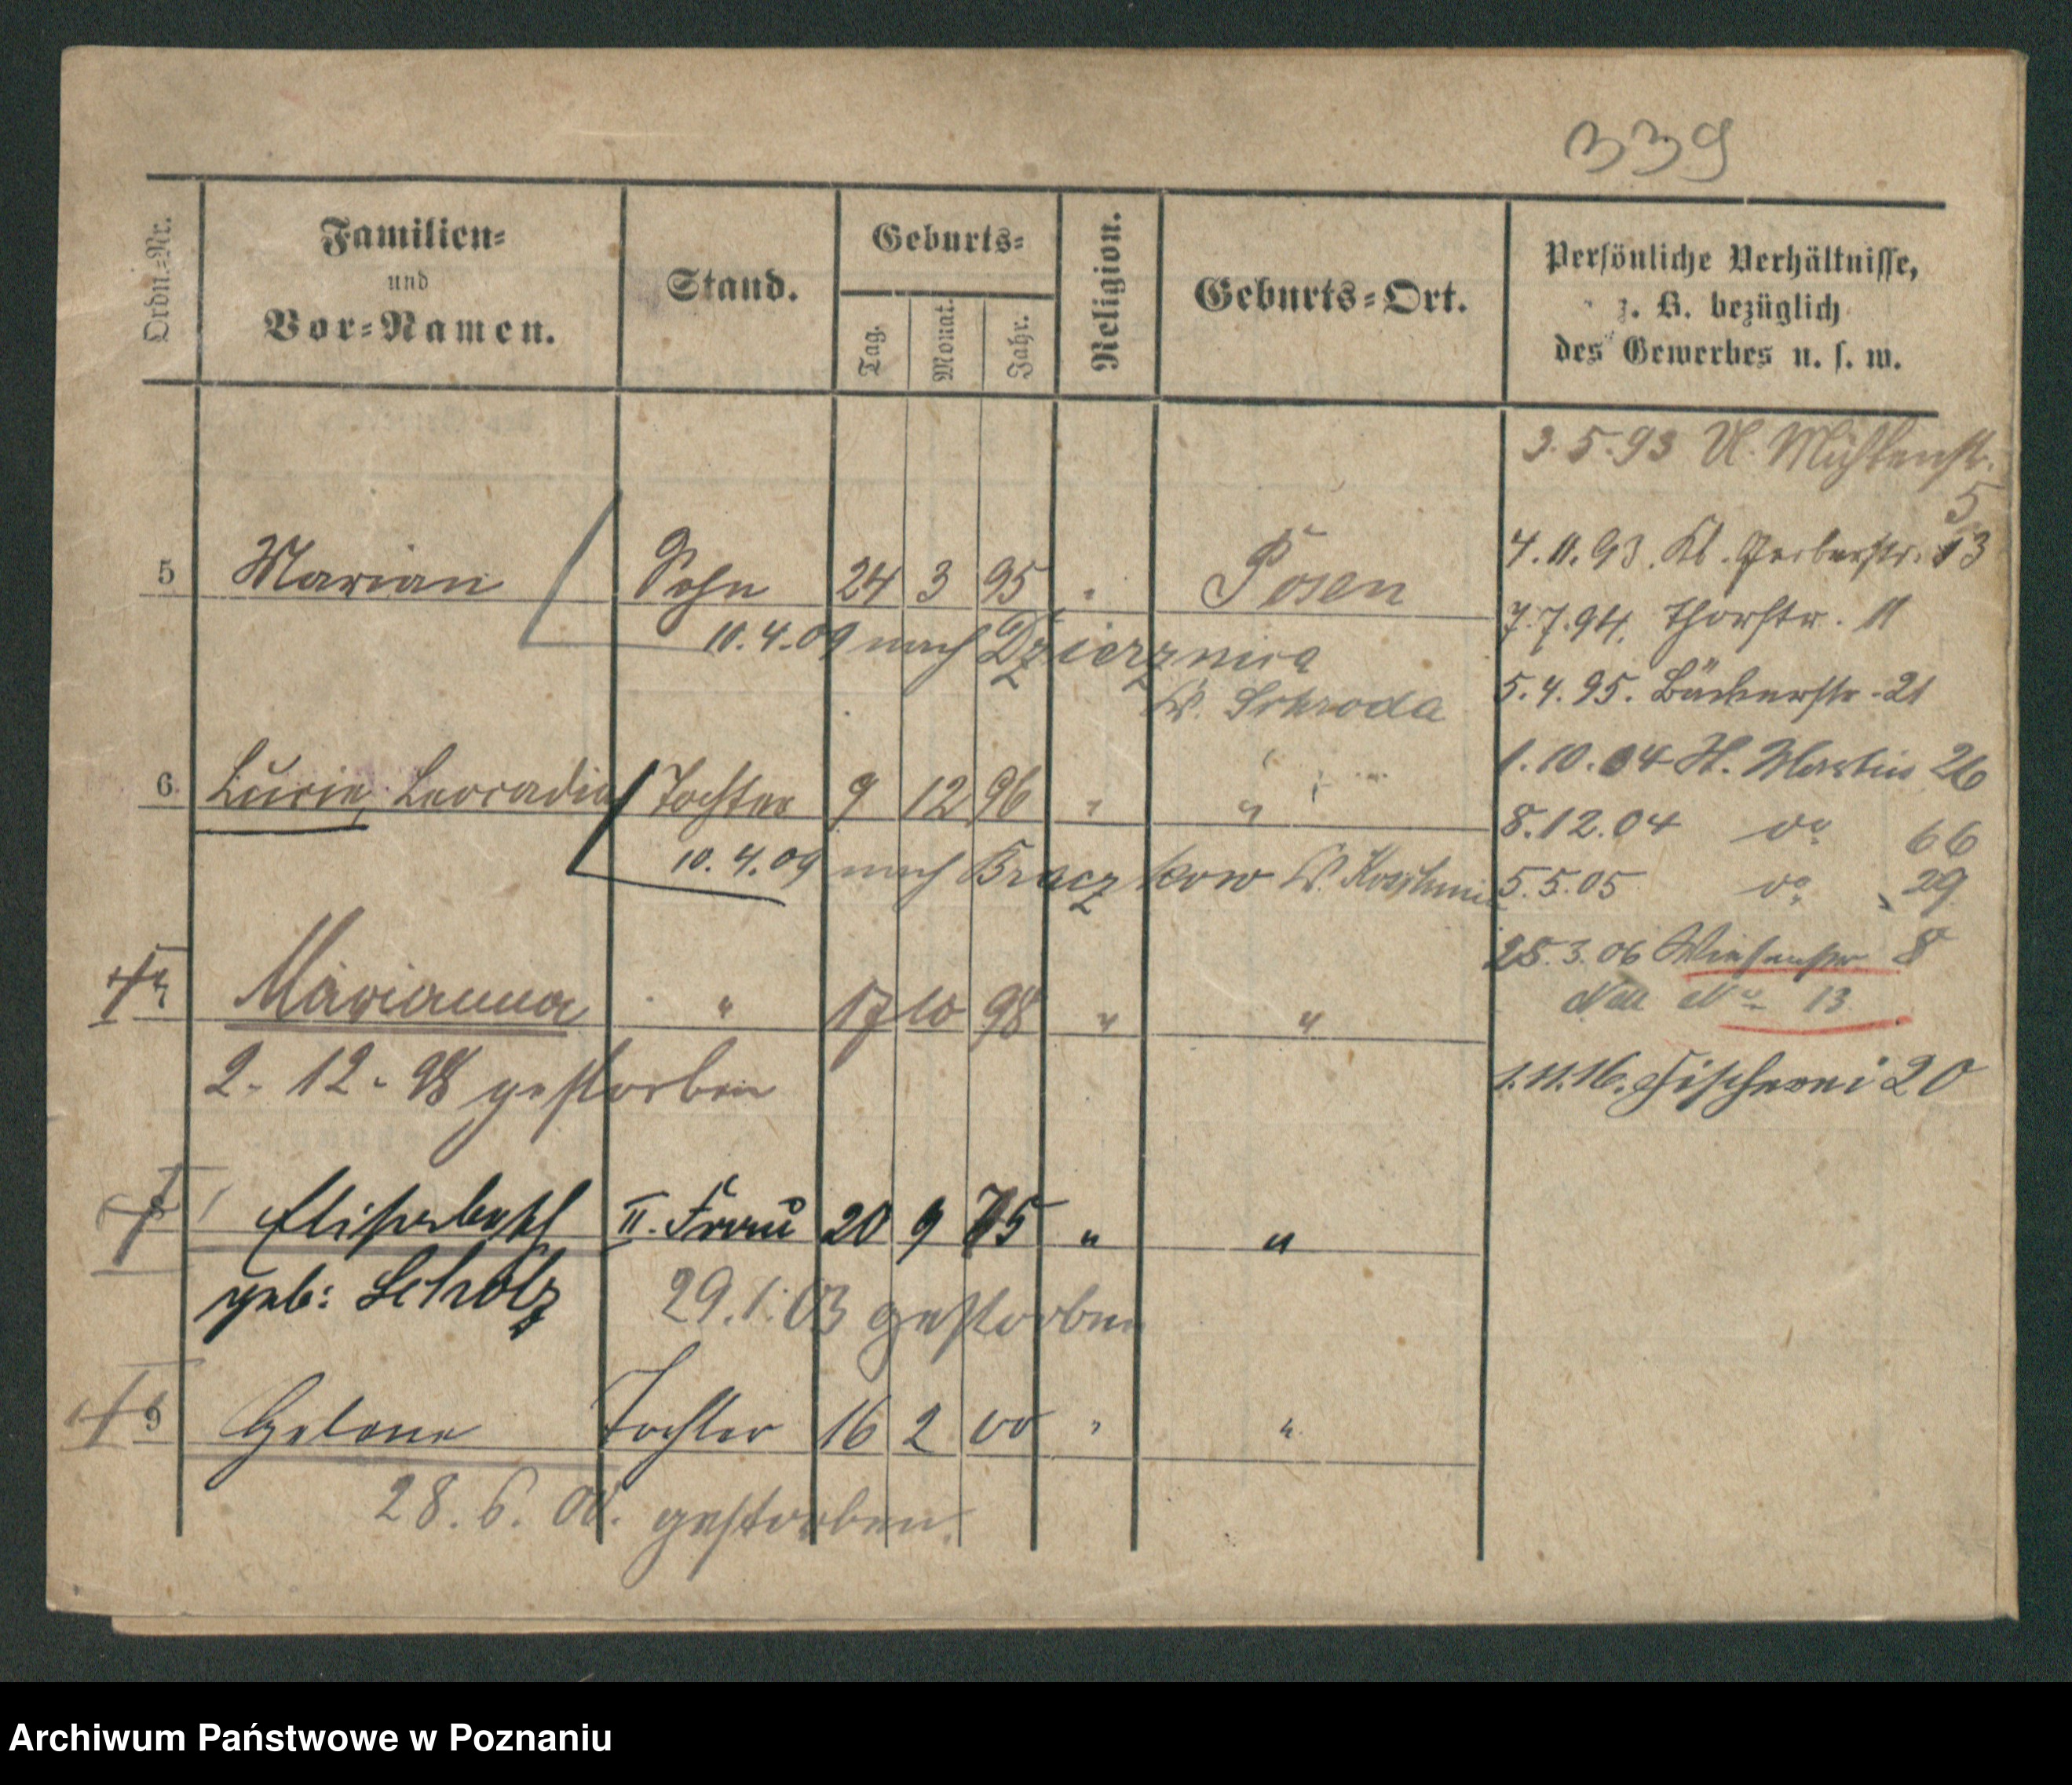 339
Ordn.=Nr.
Familien=
und
Vor=Namen.
Stand.
Geburts=
Tag.
Monat.
Jahr.
Religion.
Geburts=Ort.
Persönliche Verhältnisse,
z. B. bezüglich
des Gewerbes u. s. w.
3.5.93 U. Mühlenstr.
5
5 Marian Sohn 24 3 95 " Posen
4.11.93. Kl. Gerberstr. 13
10.4.09 nach Dzierznica
7.7.94. Thorstr. 11
K. Schroda
5.4.95. Bäckerstr. 21
1.10.04 St. Martin 26
6 Lucie, Leocadia Tochter 9 12 96 " "
8.12.04 do 66
10.4.09 nach Braczkow K. Koschmin
5.5.05 do 29
25.3.06 Wiesenstr. 8
7 Marianna " 17 10 98 " "
Neu No 13
2.12.98 gestorben
1.11.16. Fischerei 20
8 Elisabeth II. Frau 20 9 75 " "
geb: Scholz 29.1.03 gestorben
9 Helene Tochter 16 2 00 " "
28.6.00. gestorben.
Archiwum Państwowe w Poznaniu